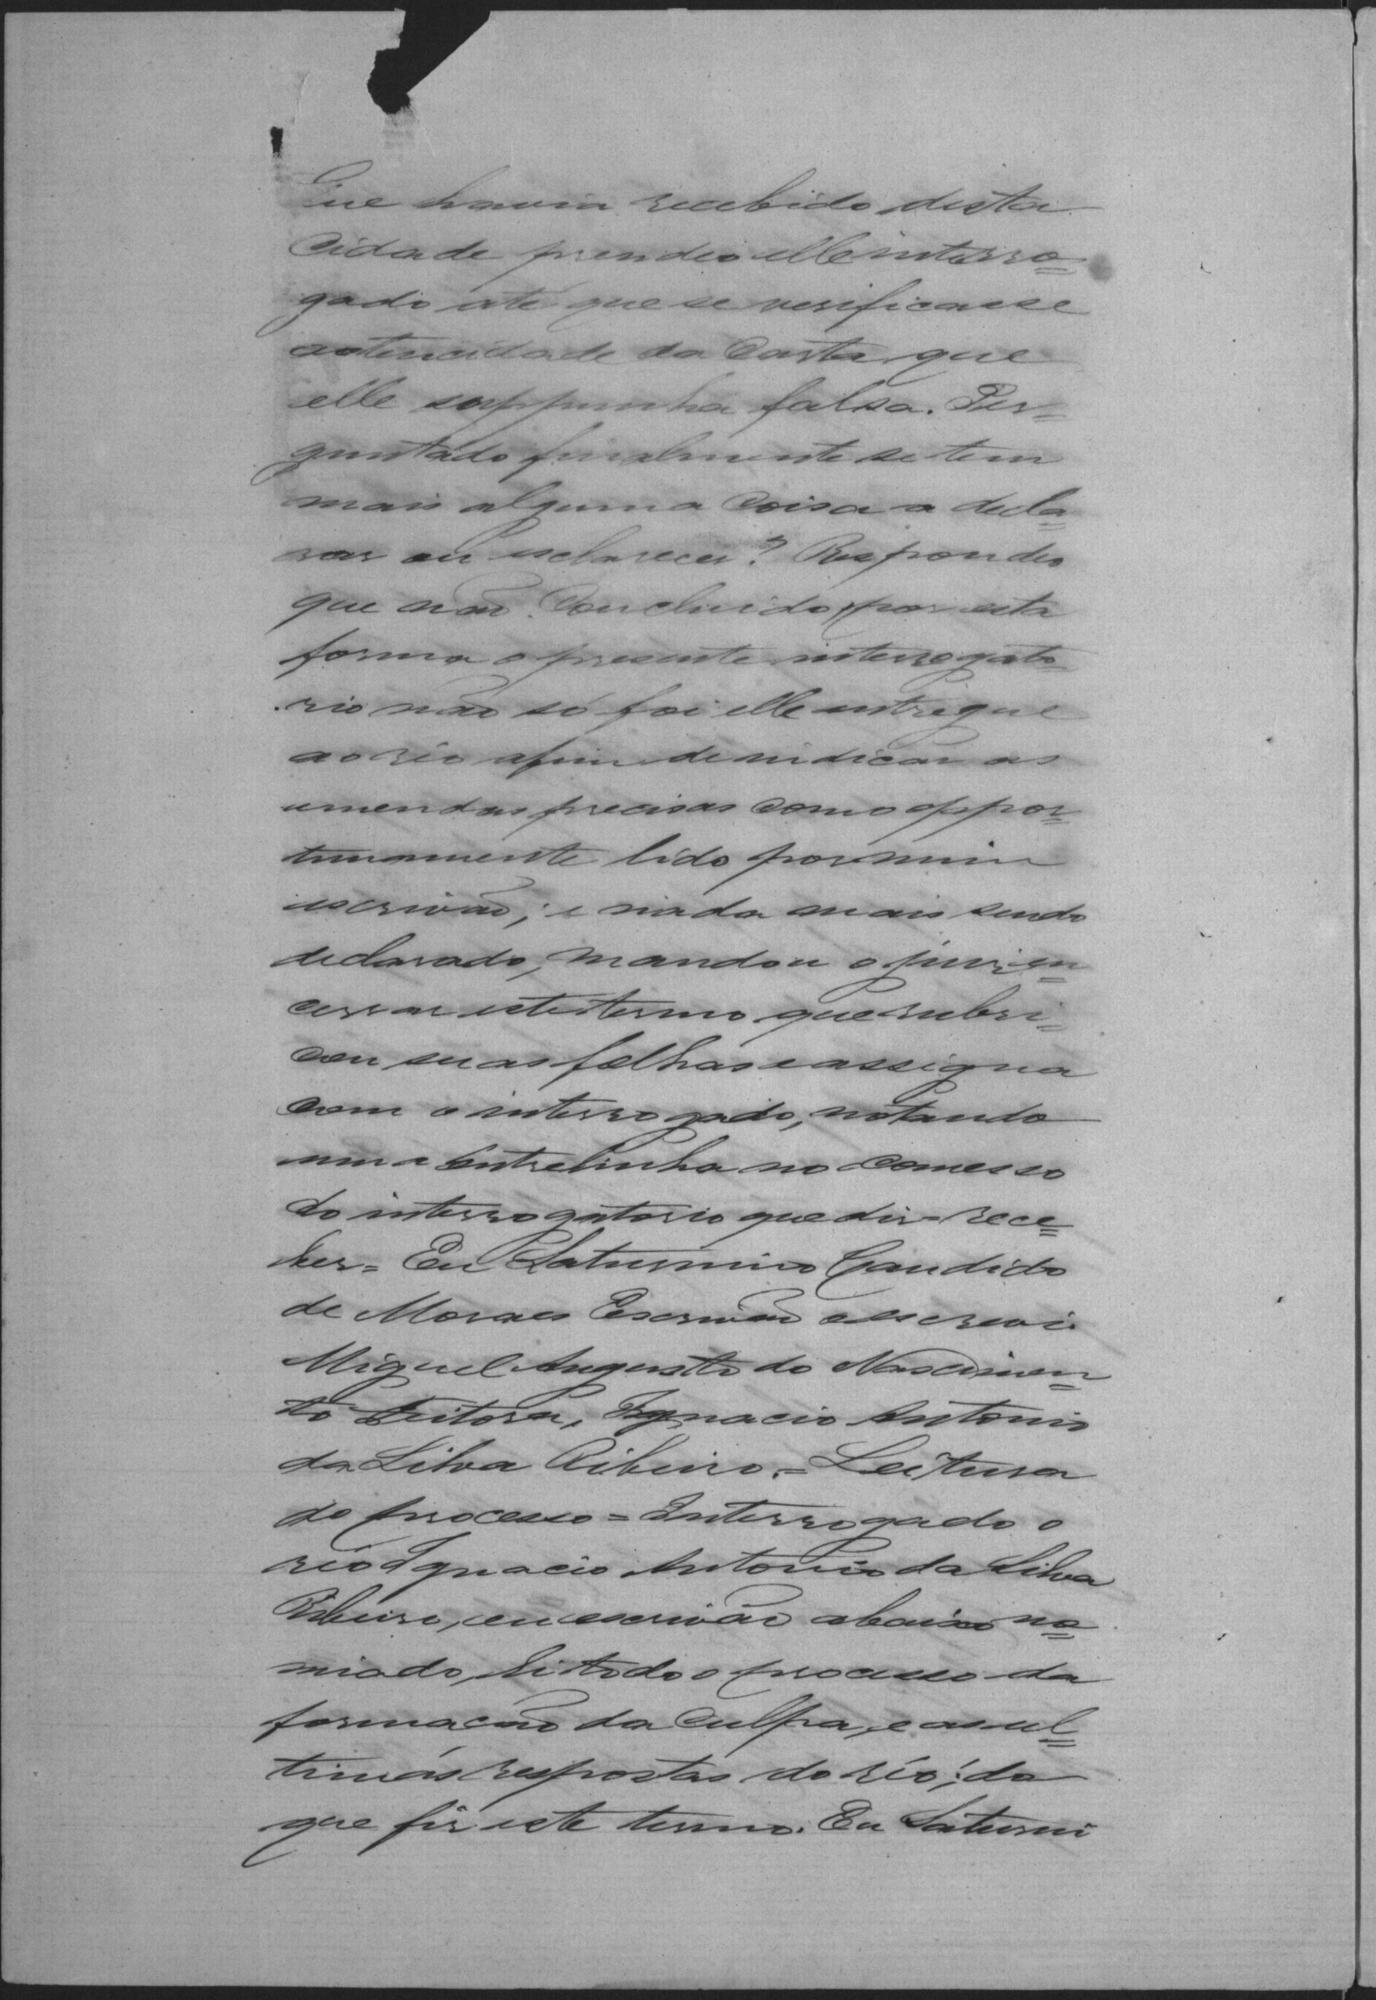 que havia recebido desta
Cidade prendeo elle interro=
gado até que se verificasse
autencidade da Carta que
elle suppunha falsa. Per=
guntado finalmente se tem
mais alguma Coisa a decla=
rar ou esclarecer? Respondeo
que não. Concluido por esta
forma o presente interrogato
rio não só foi elle entregue
ao réo afim de indicar as
emendas precisas como oppor=
tunamente lido por mim
escrivão; e nada mais sendo
declarado, mandou o juiz en=
cerrar este termo que rubri=
cou suas folhas e assigna
com o interrogado, notando
uma entrelinha no comesso
do interrogatorio que diz= rece=
ber= Eu Saturnino Candido
de Moraes Escrivão o escrevi.
Miguel Augusto do Nascimen=
to Feitosa, Ignacio Antonio
da Silva Ribeiro.= Leitura
do processo= Interrogado o
réo Ignacio Antonio da Silva
Ribeiro, eu escrivão abaixo no=
miado, li todo o processo da
formação da Culpa, e as ul=
timas respostas do réo; do
que fiz este termo. Eu Saturni